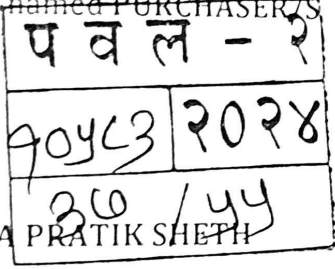 named PURCHASER/S
प व ल - २
१०५८३ २०२४
३७ / ५५
A PRATIK SHETH